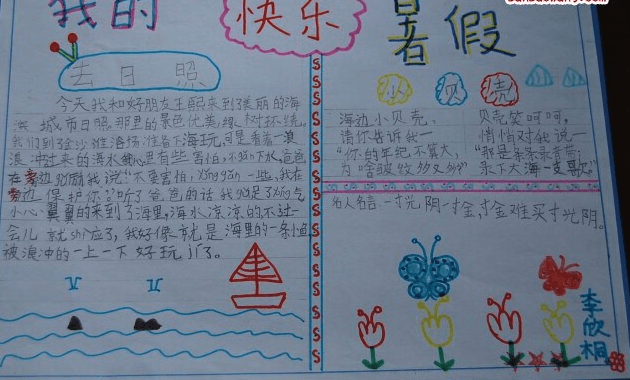 我的
快乐
暑假
去日照
今天我和好朋友王熙来到了美丽的海
滨城市日照,那里的景色优美,绿树环绕。
我们到金沙滩浴场准备下海玩,可是看着一浪
浪冲过来的海水心里有些害怕,不敢下水,爸爸
在旁边鼓励我说:“不要害怕,勇敢一些,我在
旁边保护你。”听了爸爸的话我鼓足了勇气
小心翼翼的来到了海里,海水凉凉的不过一
会儿就shì应了,我好像就是海里的一条小鱼
被浪冲的一上一下好玩儿了。
小贝壳
海边小贝壳,
请你告诉我一
“你的年纪不算大,
为啥皱纹多又多?”
贝壳笑呵呵,
悄悄对我说一
“那是
永下大海一支歌。”
名人名言:一寸光阴一寸金,寸金难买寸光阴。
李欣桐